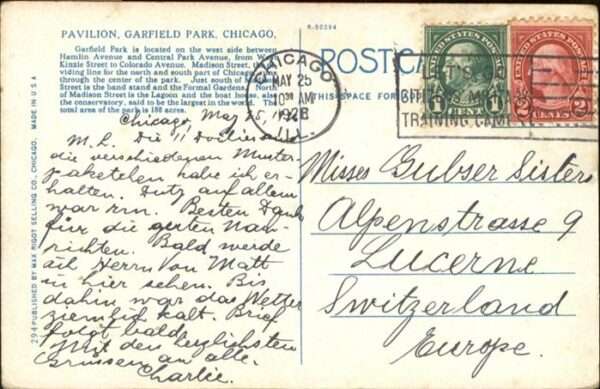 PAVILION, GARFIELD PARK, CHICAGO.
Garfield Park is located on the west side between
Hamlin Avenue and Central Park Avenue, from West
Kinzie Street to Colorado Avenue. Madison Street,
viding line for the north and south part of Chicago,
through the center of the park. Just south of
Street is the band stand and the Formal Gardens. North
of Madison Street is the Lagoon and the boat house, also
the conservatory, said to be the largest in the world. The
total area of the park is 188 acres.
R-50294
POSTCA
THIS SPACE FOR
CHICAGO
MAY 25
10 30 AM
1928
ILL.
CITIZENS
TRAINING CAMP
1 CENT 1
2 CENTS 2
294 PUBLISHED BY MAX RIGOT SELLING CO., CHICAGO. MADE IN U.S.A
Chicago, May 25, 1928
M. L. Die 11 Doilies und
die verschiedenen Muster-
paketchen habe ich er-
halten. Dutz auf allem
war rrn. Besten Dank
für die guten Nach-
richten. Bald werde
ich Herrn Von Matt
in hier sehen. Bis
dahin war das Wetter
ziemlich kalt. Brief
folgt bald.
Mit den herzlichsten
Grüssen an alle.
Charlie.
Misses Gubser Sisters
Alpenstrasse 9
Lucerne
Switzerland
Europe.